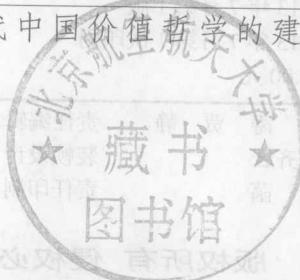 代中国价值哲学的建
北京航空航天大学
★ 藏书 ★
图书馆
版权所有 侵权必